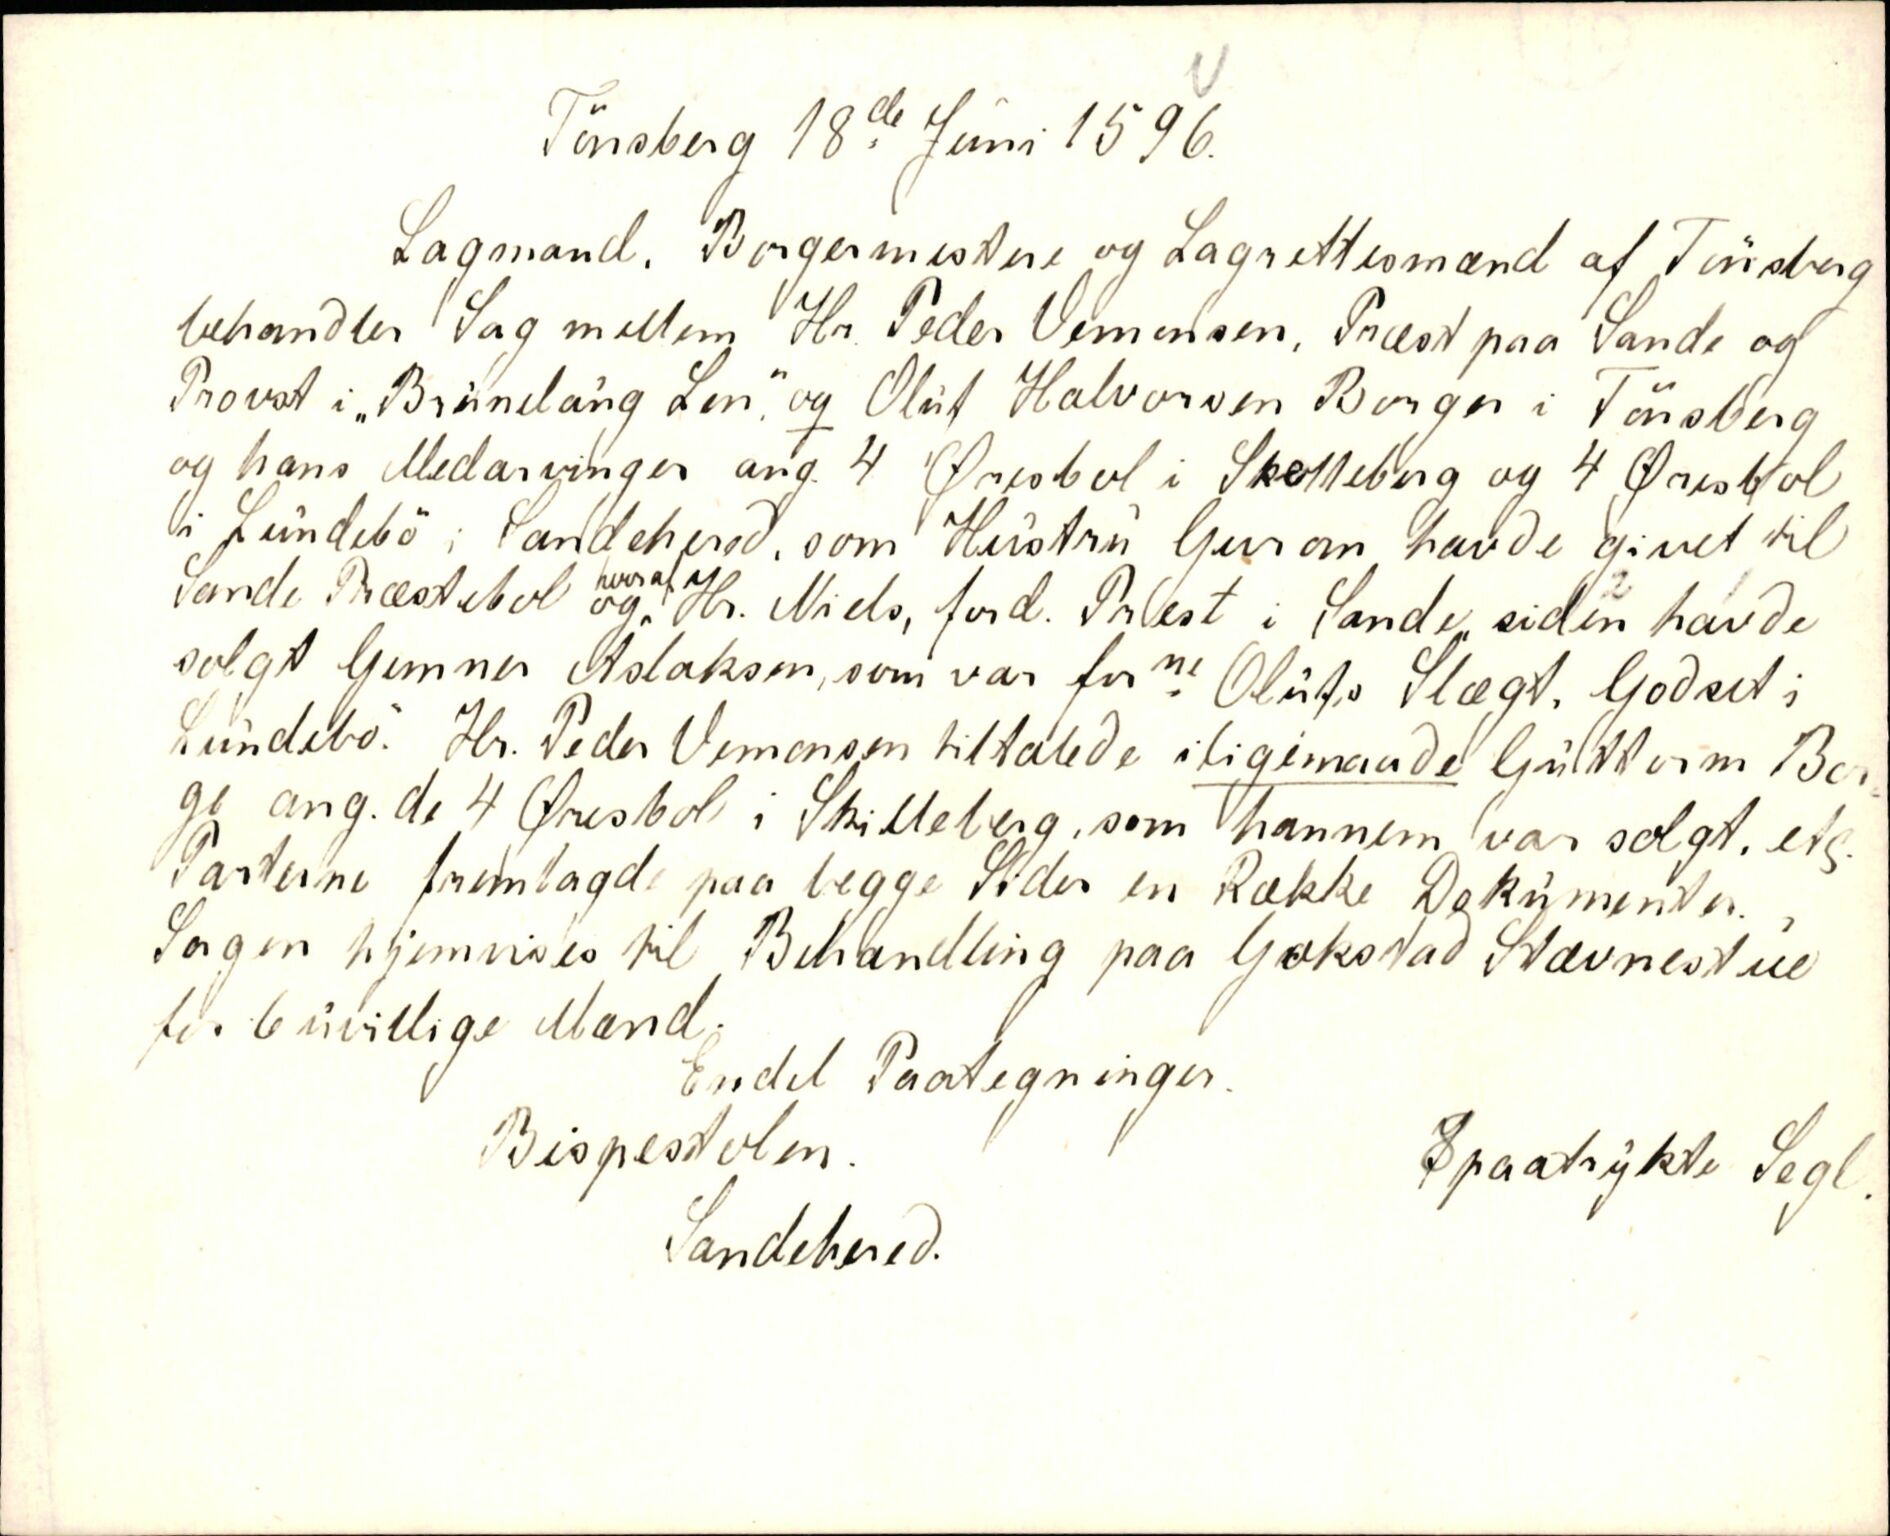 Tönsberg 18de Juni 1596.
Lagmand, Borgermestere og Lagrettesmænd af Tönsberg
behandler Sag mellem Hr. Peder Vemensen, Præst paa Sande og
Provst i „Brunelaug Len", og Oluf Halvorsen Borger i Tönsberg
og hans Medarvinger ang. 4 Øresbol i Skelleberg og 4 Øresbol
i Lundebö i Sandeherred, som Hustru Guron havde givet til
Sande Præstebol og hvoraf Hr. Niels, ford. Præst i Sande, siden havde
solgt Gunner Aslaksen, som var forne Olufs Slægt, Godset i
Lundebö. Hr. Peder Vemonsen tiltalede iligemaade Guttorm Bor-
ge ang. de 4 Øresbol i Skilleberg, som hannem var solgt, etc.
Parterne fremlagde paa begge Sider en Række Dokumenter.
Sagen hjemvises til Behandling paa Gokstad Stævnestue
for 6 uvillige Mænd.
Endel Paategninger.
Bispestolen.
8 paatrykte Segl.
Sandeherred.